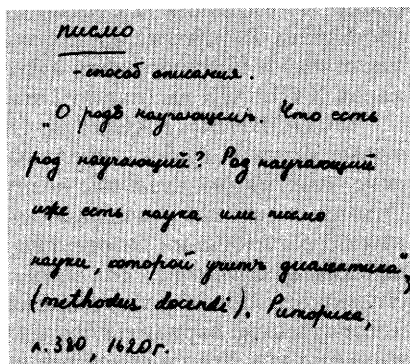 писмо
- способ описания.
„О родѣ научающемъ. Что есть
род научающий? Род научающий
иже есть наука или писмо
науки, которой учитъ диалектика",
(methodus docendi). Риторика,
л. 380, 1620г.